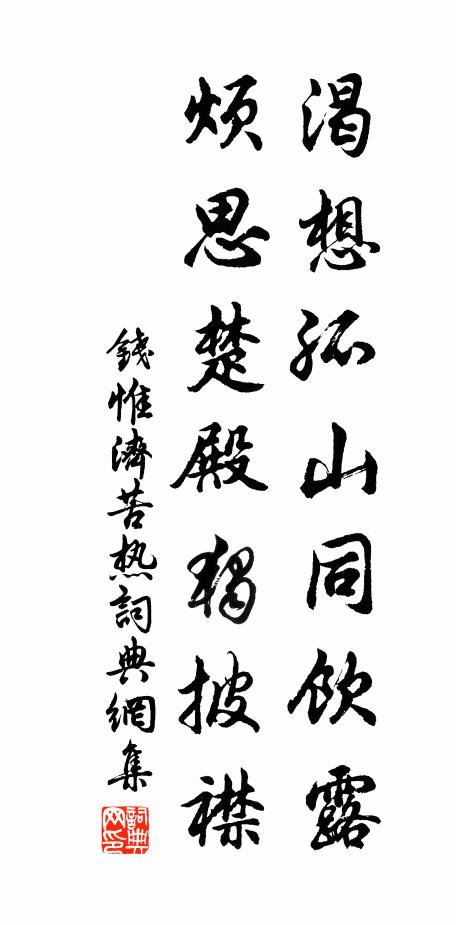 渴想孤山同飲露
煩思楚殿獨披襟
錢惟濟苦熱詞典網集
詞典網印